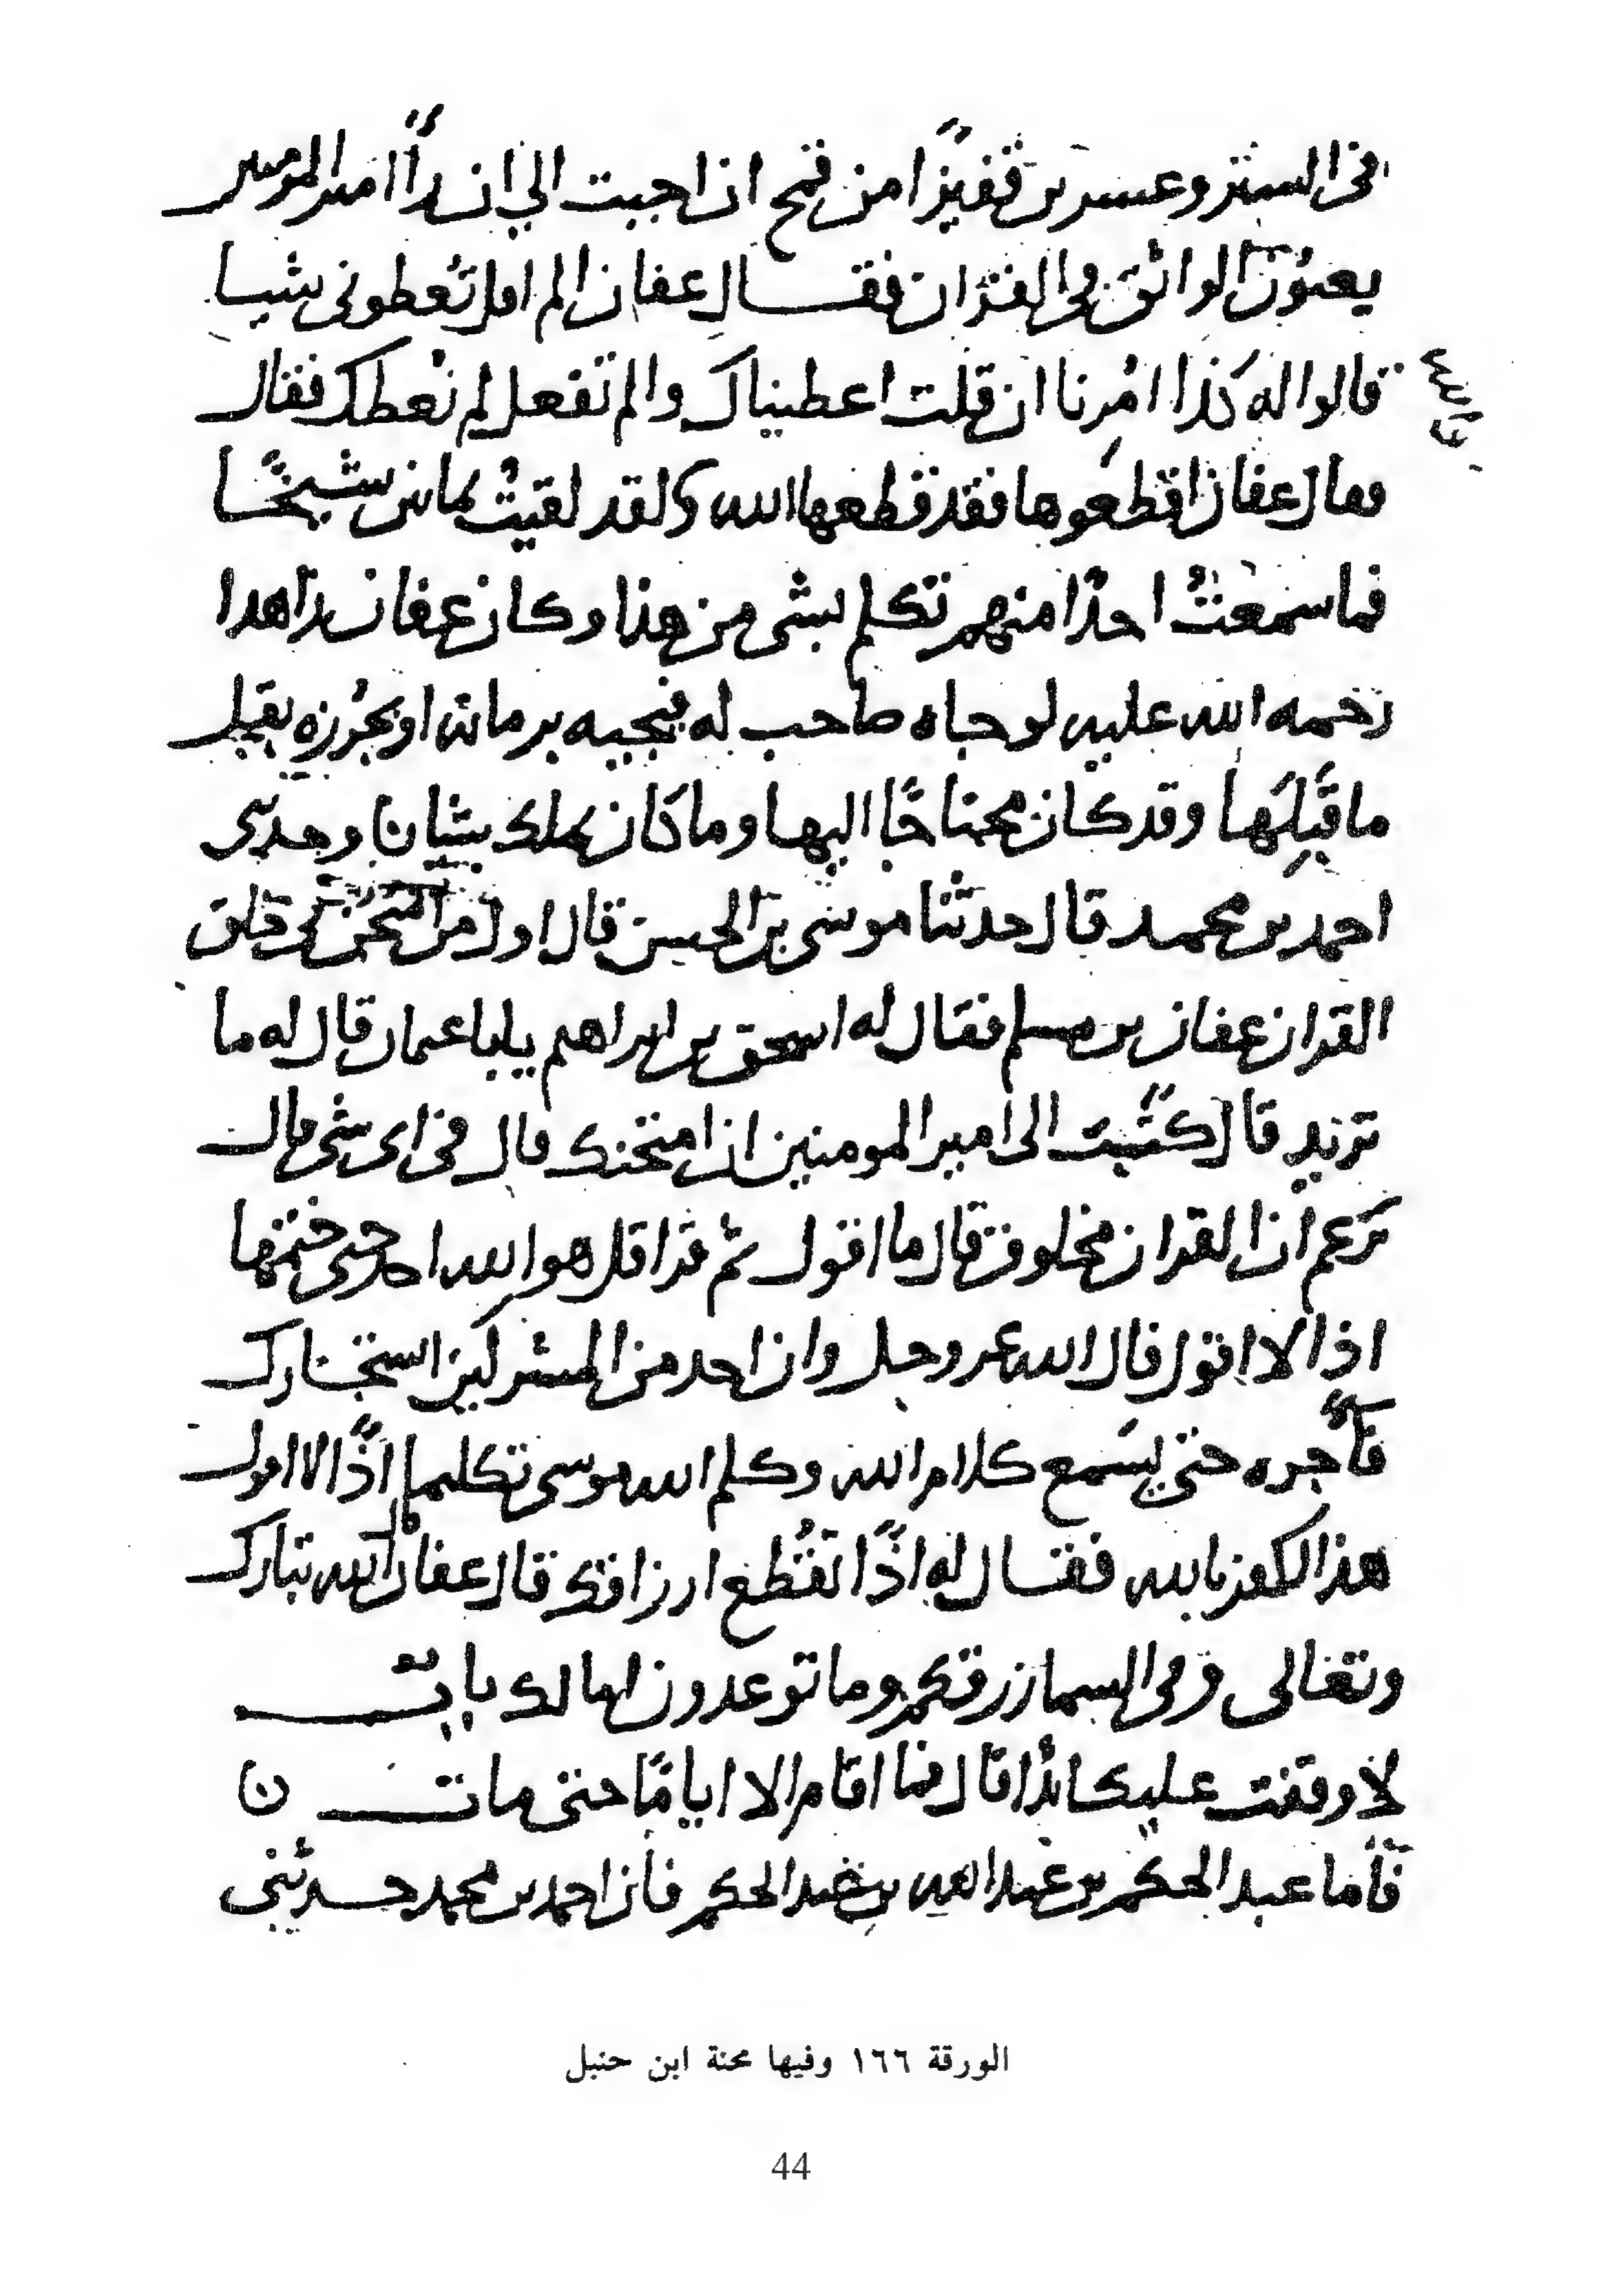 في الستر وعشرين قفيزا من قمح ان اجبت الي ان رأا امير المومنين
يعنون الواثق في القرآن فقال عفان الم اقل تعطوني شيا
قالوا له كذا امرنا ان قلت اعطيناك والم تفعل لم نعطك فقال
فقال عفان اقطعوها فقد قطعها الله ولقد لقيت ثمانين شيخا
فما سمعت احدا منهم تكلم بشي من هذا وكان عفان زاهدا
رحمه الله عليه لو جاه صاحب له فيجيه برمانة او بجرزه بقل
ما قبلها وقد كان محتاجا اليها وما كان يملك وحدثني
احمد بن محمد قال حدثنا موسى بن الحسن قال اول من امتحن في خلق
القران عفان بن مسلم فقال له اسحق بن ابراهيم يابا عمار قال له ما
تريد قال كتبت الى امير المومنين ان امتحنك قال في اى شي قال
تزعم ان القران مخلوق قال ما اقول ثم قرا قل هو الله احد حتى ختمها
اذا لا اقول قال الله عز وجل وان احد من المشركين استجارك
فأجره حتى يسمع كلام الله وكلم الله موسى تكليما اذا لا اقول
هذا الكفر بالله فقال له اذا تقطع ارزاقك قال عفان قال الله تبارك
وتعالى وفي السما رزقكم وما توعدون لها لك باب
لا وقفت عليك ابدا قال فما اقام الا اياما حتى مات ن
فأما عبد الحكم بن عبد الله بن عبد الحكم فان احمد بن محمد حدثني
الورقة ١٦٦ وفيها محنة ابن حنبل
44